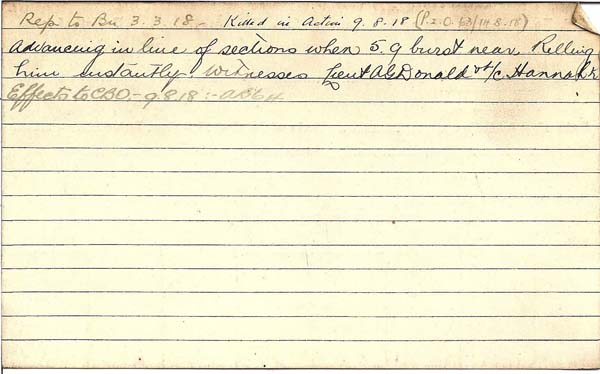 Rep to Bn 3.3.18 - Killed in Action 9.8.18 (P.2.O. 63/14.8.18)
advancing in line of sections when 5.9 burst near, Killing
him instantly. Witnesses Lieut A G Donald & L/c Hannah
Effects to CBO. - 9.8.18 :-